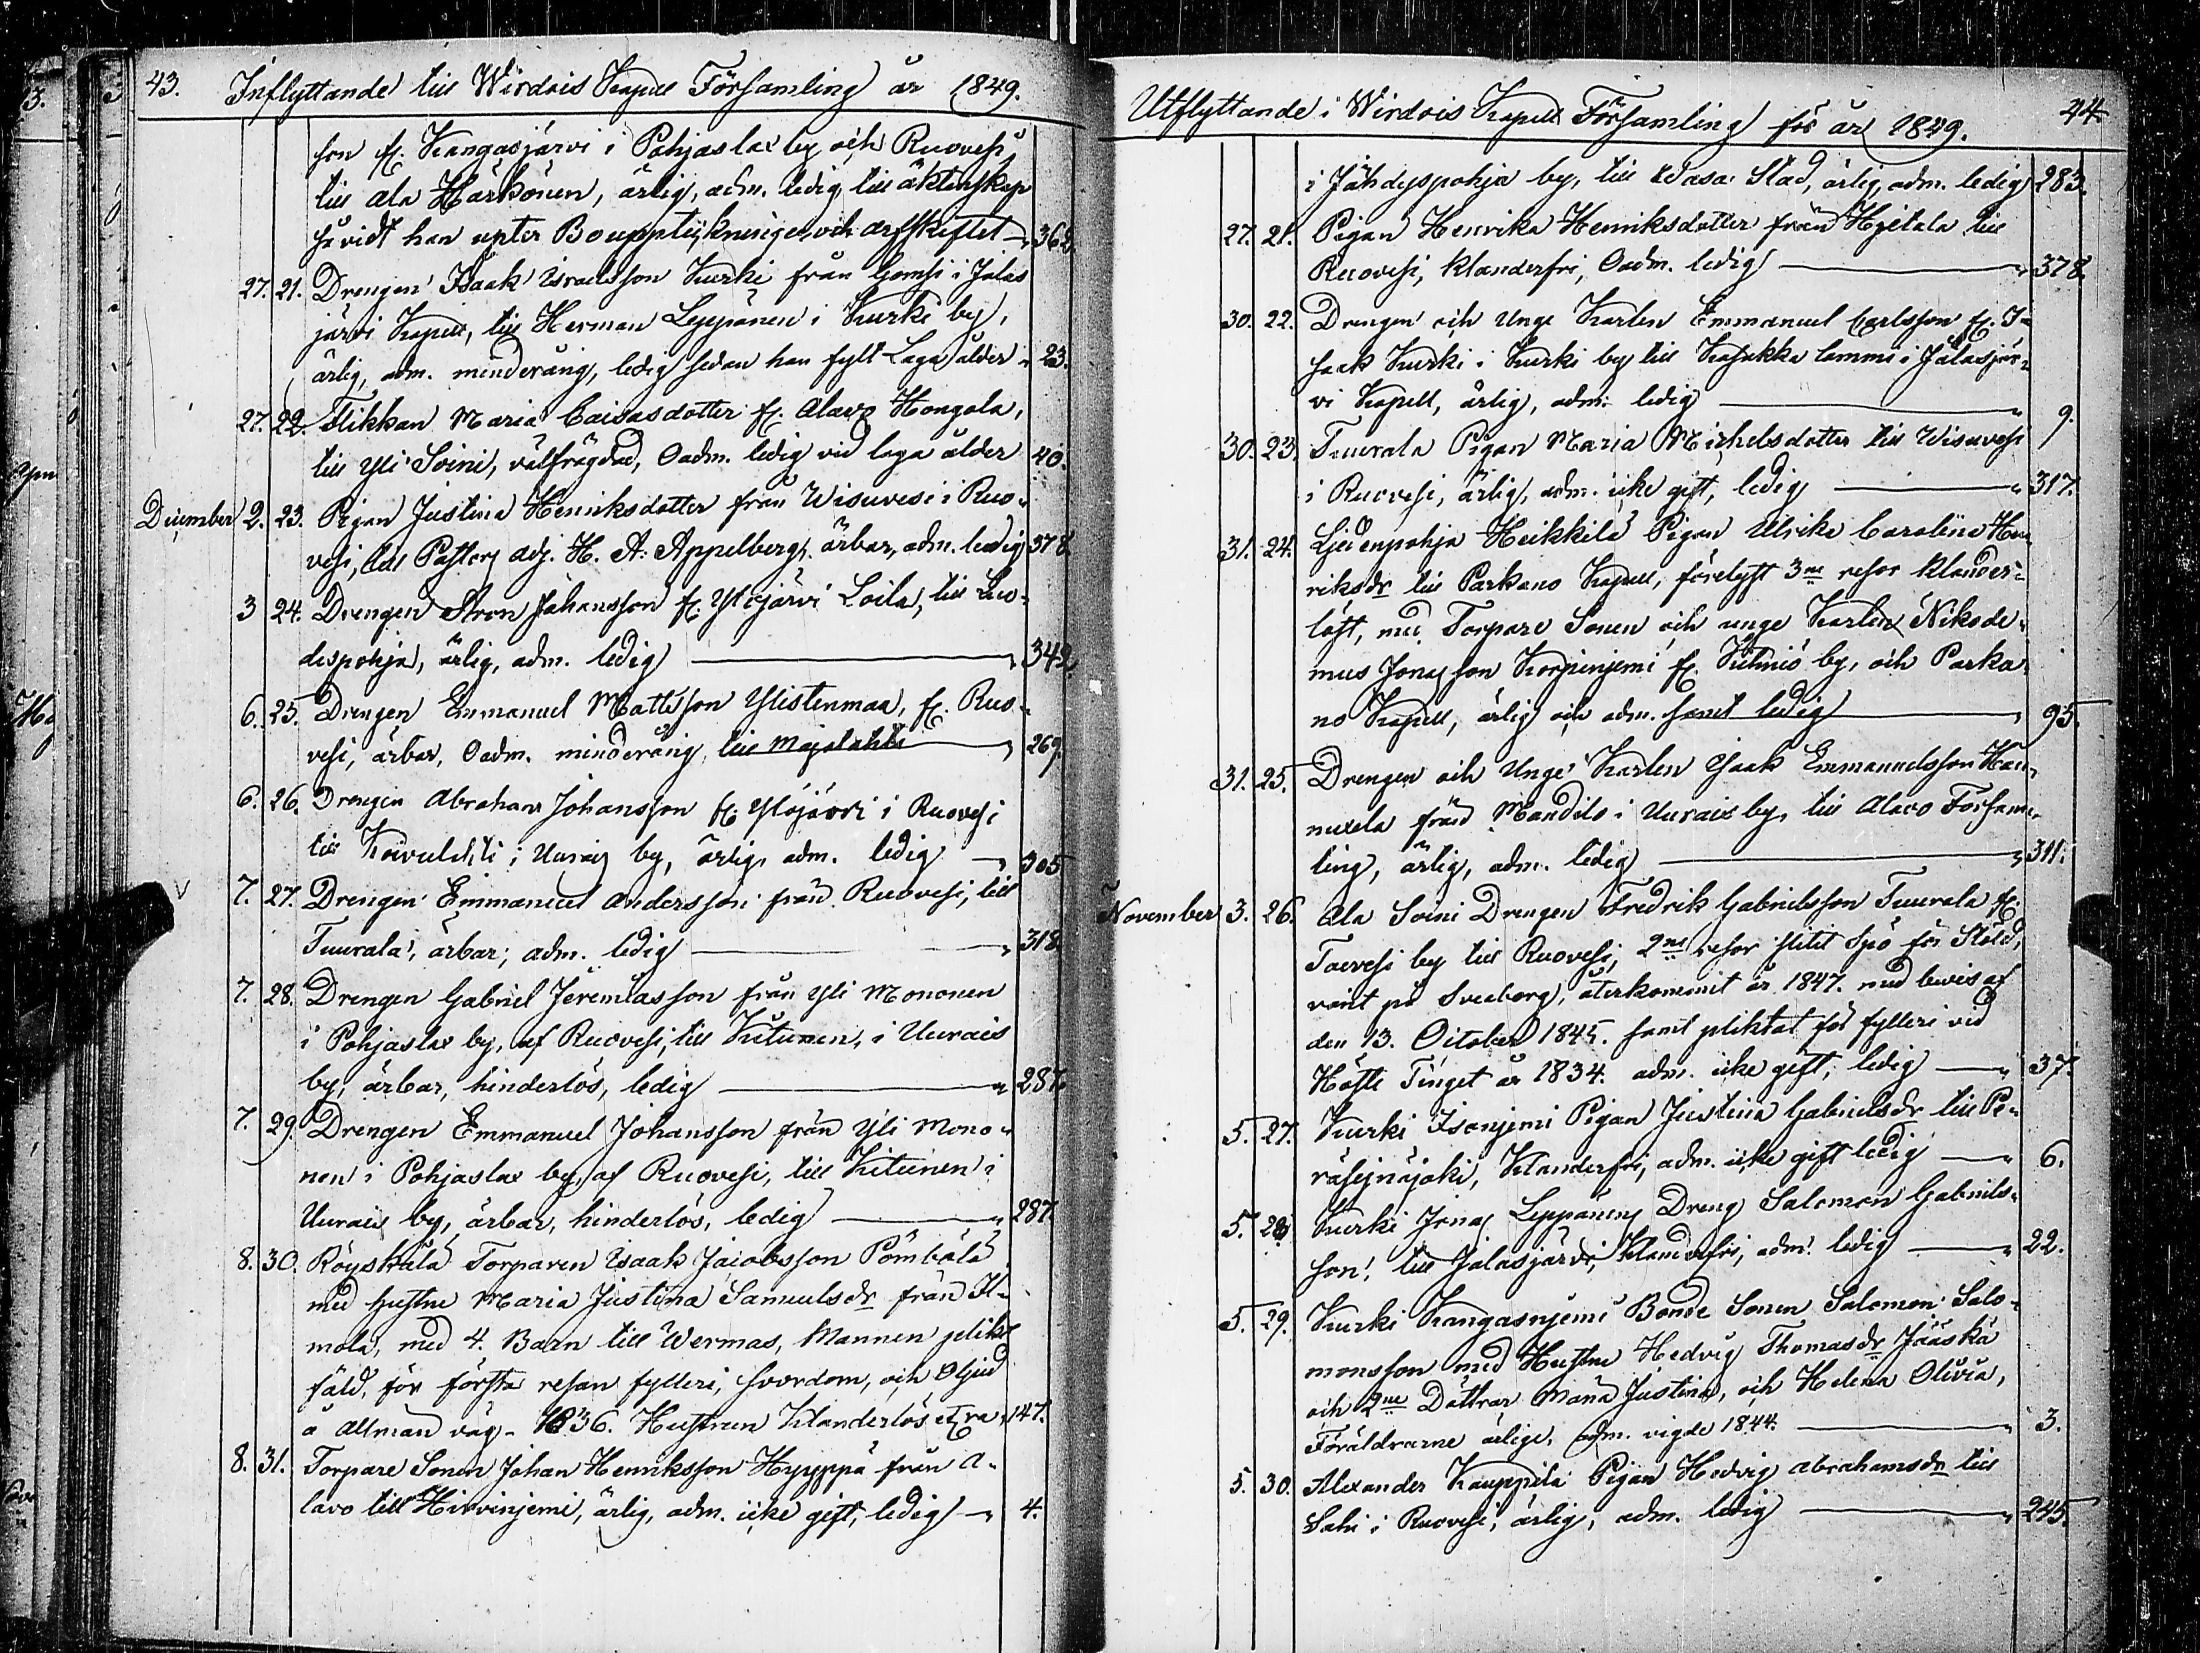 43. Inflyttande till Wirdois Kapell Församling år 1849.
son fr. Kangasjärvi i Pohjaslax by och Ruovesi,
till Ala Härkönen, ärlig, adm. ledig till äktenskap
såvidt han upter Boupptekninge och arfskiftet 362.
27. 21. Drengen Isaak Israelsson Kurki från Gomsi i Jalas
järvi Kapell, till Herman Leppänen i Kurki by,
ärlig, adm. minderårig, ledig sedan han fyllt Laga ålder 23.
27. 22. Flikkan Maria Caisasdotter fr. Alavo Hongola,
till Yli Soini, välfrägdad, Oadm. ledig vid laga ålder 40.
December 2. 23. Pigan Justina Henriksdotter från Wisuvesi i Ruo-
vesi, till Pastors adj. H. A. Appelbergs. ärbar, adm. ledig 378.
3 24. Drengen Johansson fr. Ylöjärvi Loila, till
despohja, ärlig, adm. ledig 349.
6. 25. Drengen Emmanuel Mattsson Ylistenmaa, fr. Ruo-
vesi, ärbar, Oadm. minderårig, till Majalahti 269.
6. 26. Drengen Abraham Johansson fr. Ylöjärvi i Ruovesi
till Koivulahti i Uurais by, ärlig, adm. ledig 305
7. 27. Drengen Emmanuel Andersson från Ruovesi, till
Tuurala, ärbar, adm. ledig 318.
7. 28. Drengen Gabriel Jeremiasson från Yli Mononen
i Pohjaslax by, af Ruovesi, till Kitunen, i Uurais
by, ärbar, hinderlös, ledig 287.
7. 29. Drengen Emmanuel Johansson från Yli Mono-
nen i Pohjaslax by, af Ruovesi, till Kitunen i
Uurais by, ärbar, hinderlös, ledig 287.
8. 30. Röyskälä Torparen Isaak Jacobsson Pömbälä
med hustru Maria Justina Samuelsdr från Il-
mola, med 4. Barn till Wermas, Mannen plikt
fäld, för första resan fylleri, svordom, och Oljud
å Allmän väg. 1836. Hustrun klanderlös 147.
8. 31. Torpare Sonen Johan Henriksson Hyyppä från A-
lavo till Hirvinjemi, ärlig, adm. icke gift, ledig 4.
Utflyttande i Wirdois Kapell Församling för år 1849. 44
i Jähdyspohja by, till Wasa Stad, ärlig, adm. ledig 283.
27. 21. Pigan Henrika Henriksdotter från Hjetala till
Ruovesi, klanderfri, Oadm. ledig 378.
30. 22. Drengen och Unge Karlen Emmanuel Carlsson fr. I-
saak Kurki i Kurki by till Kasukka Lammi i Jalasjär-
vi Kapell, ärlig, adm. ledig 9.
30. 23. Tuurala Pigan Maria Michelsdotter till Wisuvesi
i Ruovesi, ärlig, adm. icke gift, ledig 317.
31. 24. Ljedenpohja Heikkilä Pigan Ulrika Carolina Hen-
riksdr till Parkano Kapell, förelyst 3ne resor klander-
löst, med Torpare Sonen och unge Karlen Nikode-
mus Jonasson Korpinjemi fr. Kihniö by, och Parka-
no Kapell, ärlig och adm. samt ledig 95.
31. 25. Drengen och Unge Karlen Isaak Emmanuelsson Han-
nuxela från Mandila i Uurais by, till Alavo Försam-
ling, ärlig, adm. ledig 311.
November 3. 26. Ala Soini Drengen Fredrik Gabrielsson Tuurala fr.
Toivesi by till Ruovesi, 2ne resor slitit Spö för Stöld,
varit på Sveaborg, återkommit år 1847. med bevis af
den 13. October 1845. samt pliktat för fylleri vid
Höste Tinget år 1834. adm. icke gift, ledig 37.
5. 27. Kurki Isonjemi Pigan Justina Gabrielsdr till Pe-
räseinäjoki, klanderfri, adm. icke gift ledig 6.
5. 28. Kurki Jonas Leppänens Dreng Salomon Gabriels-
son, till Jalasjärvi, klanderfri, adm. ledig 22.
5. 29. Kurki Kangasnjemi Bonde Sonen Salomon Salo-
monsson med Hustru Hedvig Thomasdr Jääskä
och 2ne Döttrar Maria Justina, och Helena Olivia,
Föräldrarne ärlige, adm. vigde 1844. 3.
5. 30. Alexander Kauppila Pigan Hedvig Abrahamsdr till
Salu i Ruovesi, ärlig, adm. ledig 245.